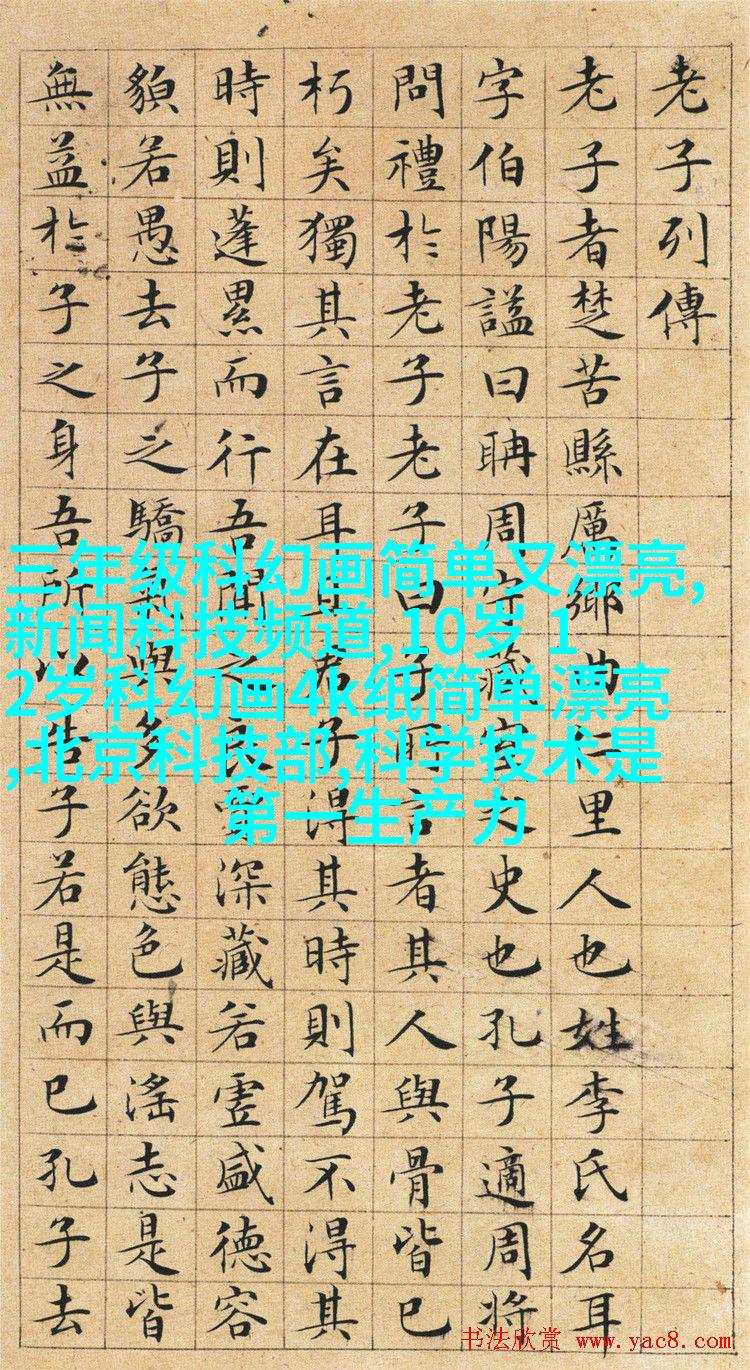 老子列傳
老子者楚苦縣厲鄉曲仁里人也姓李氏名耳
字伯陽謚曰聃周守藏室之史也孔子適周將
問禮於老子老子曰子所言者其人與骨皆已
朽矣獨其言在耳且君子得其時則駕不得其
時則蓬累而行吾聞之良賈深藏若虛盛德容
䫉若愚去子之驕氣與多欲態色與淫志是皆
無益於子之身吾所以告子若是而已孔子去
三年级科幻画简单又漂亮,
新闻科技频道,10岁 1
2岁科幻画4k纸简单漂亮
,北京科技部,科学技术是
第一生产力
书法欣赏 www.yac8.com